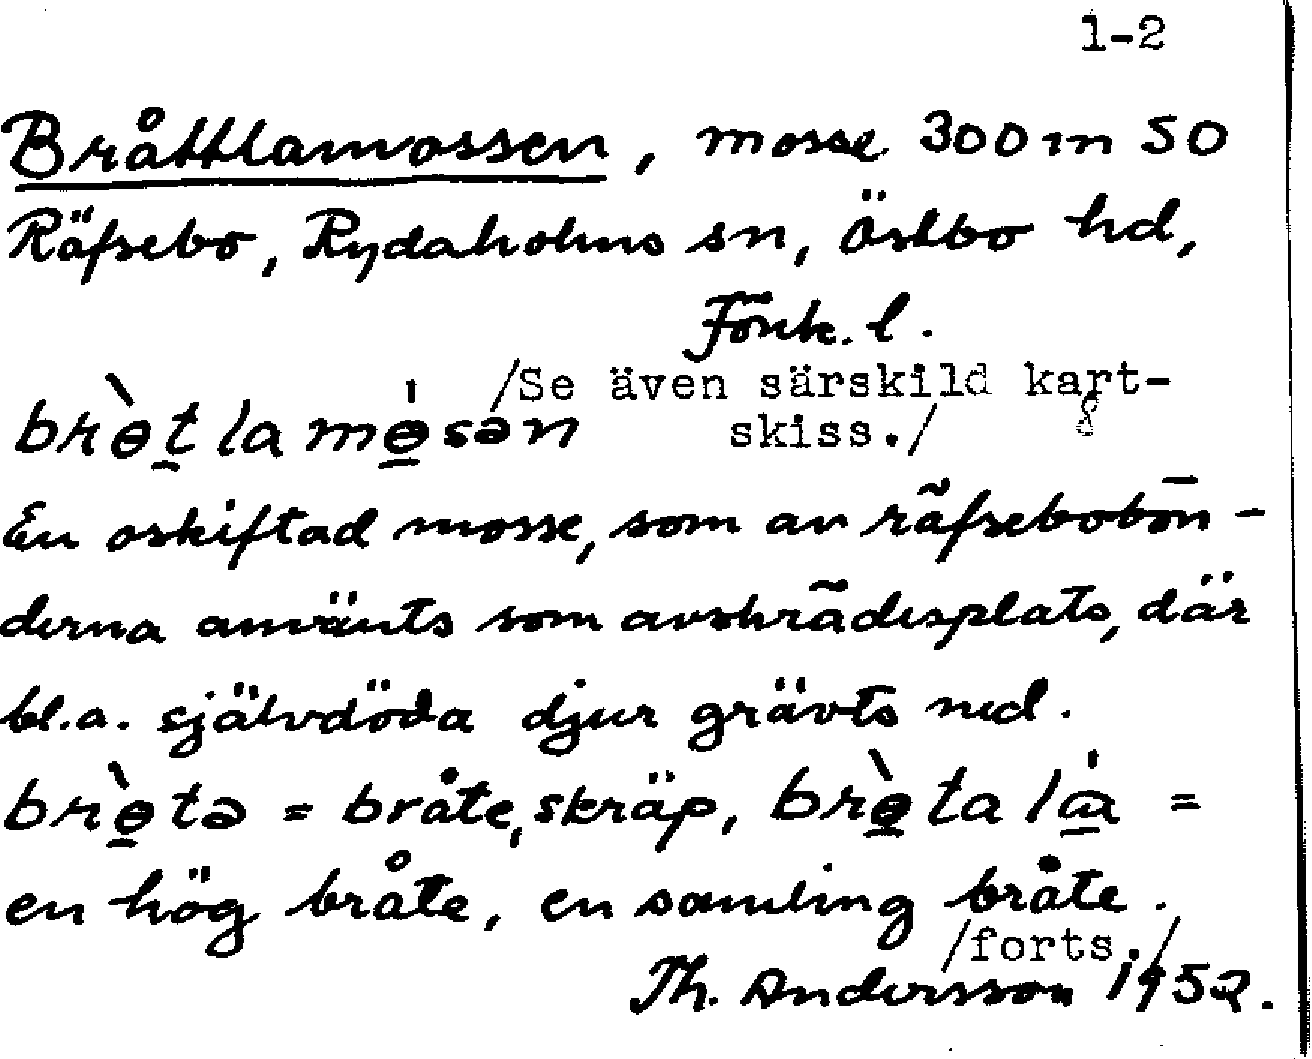 1-2
Bråttlamossen, mosse 300 m SO
Räfsebo, Rydaholms sn, Östbo hd,
Jönk. l.
/Se även särskild kart-
brɵ̀t̲lamɵ̲́sən skiss./
En oskiftad mosse, som av räfsebobön-
derna använts som avskrädesplats, där
bl.a. självdöda djur grävts ned.
brɵ̲̀tə = bråte, skräp, brɵ̲̀ta lá̲ =
en hög bråte, en samling bråte.
/forts./
Th. Andersson 1952.